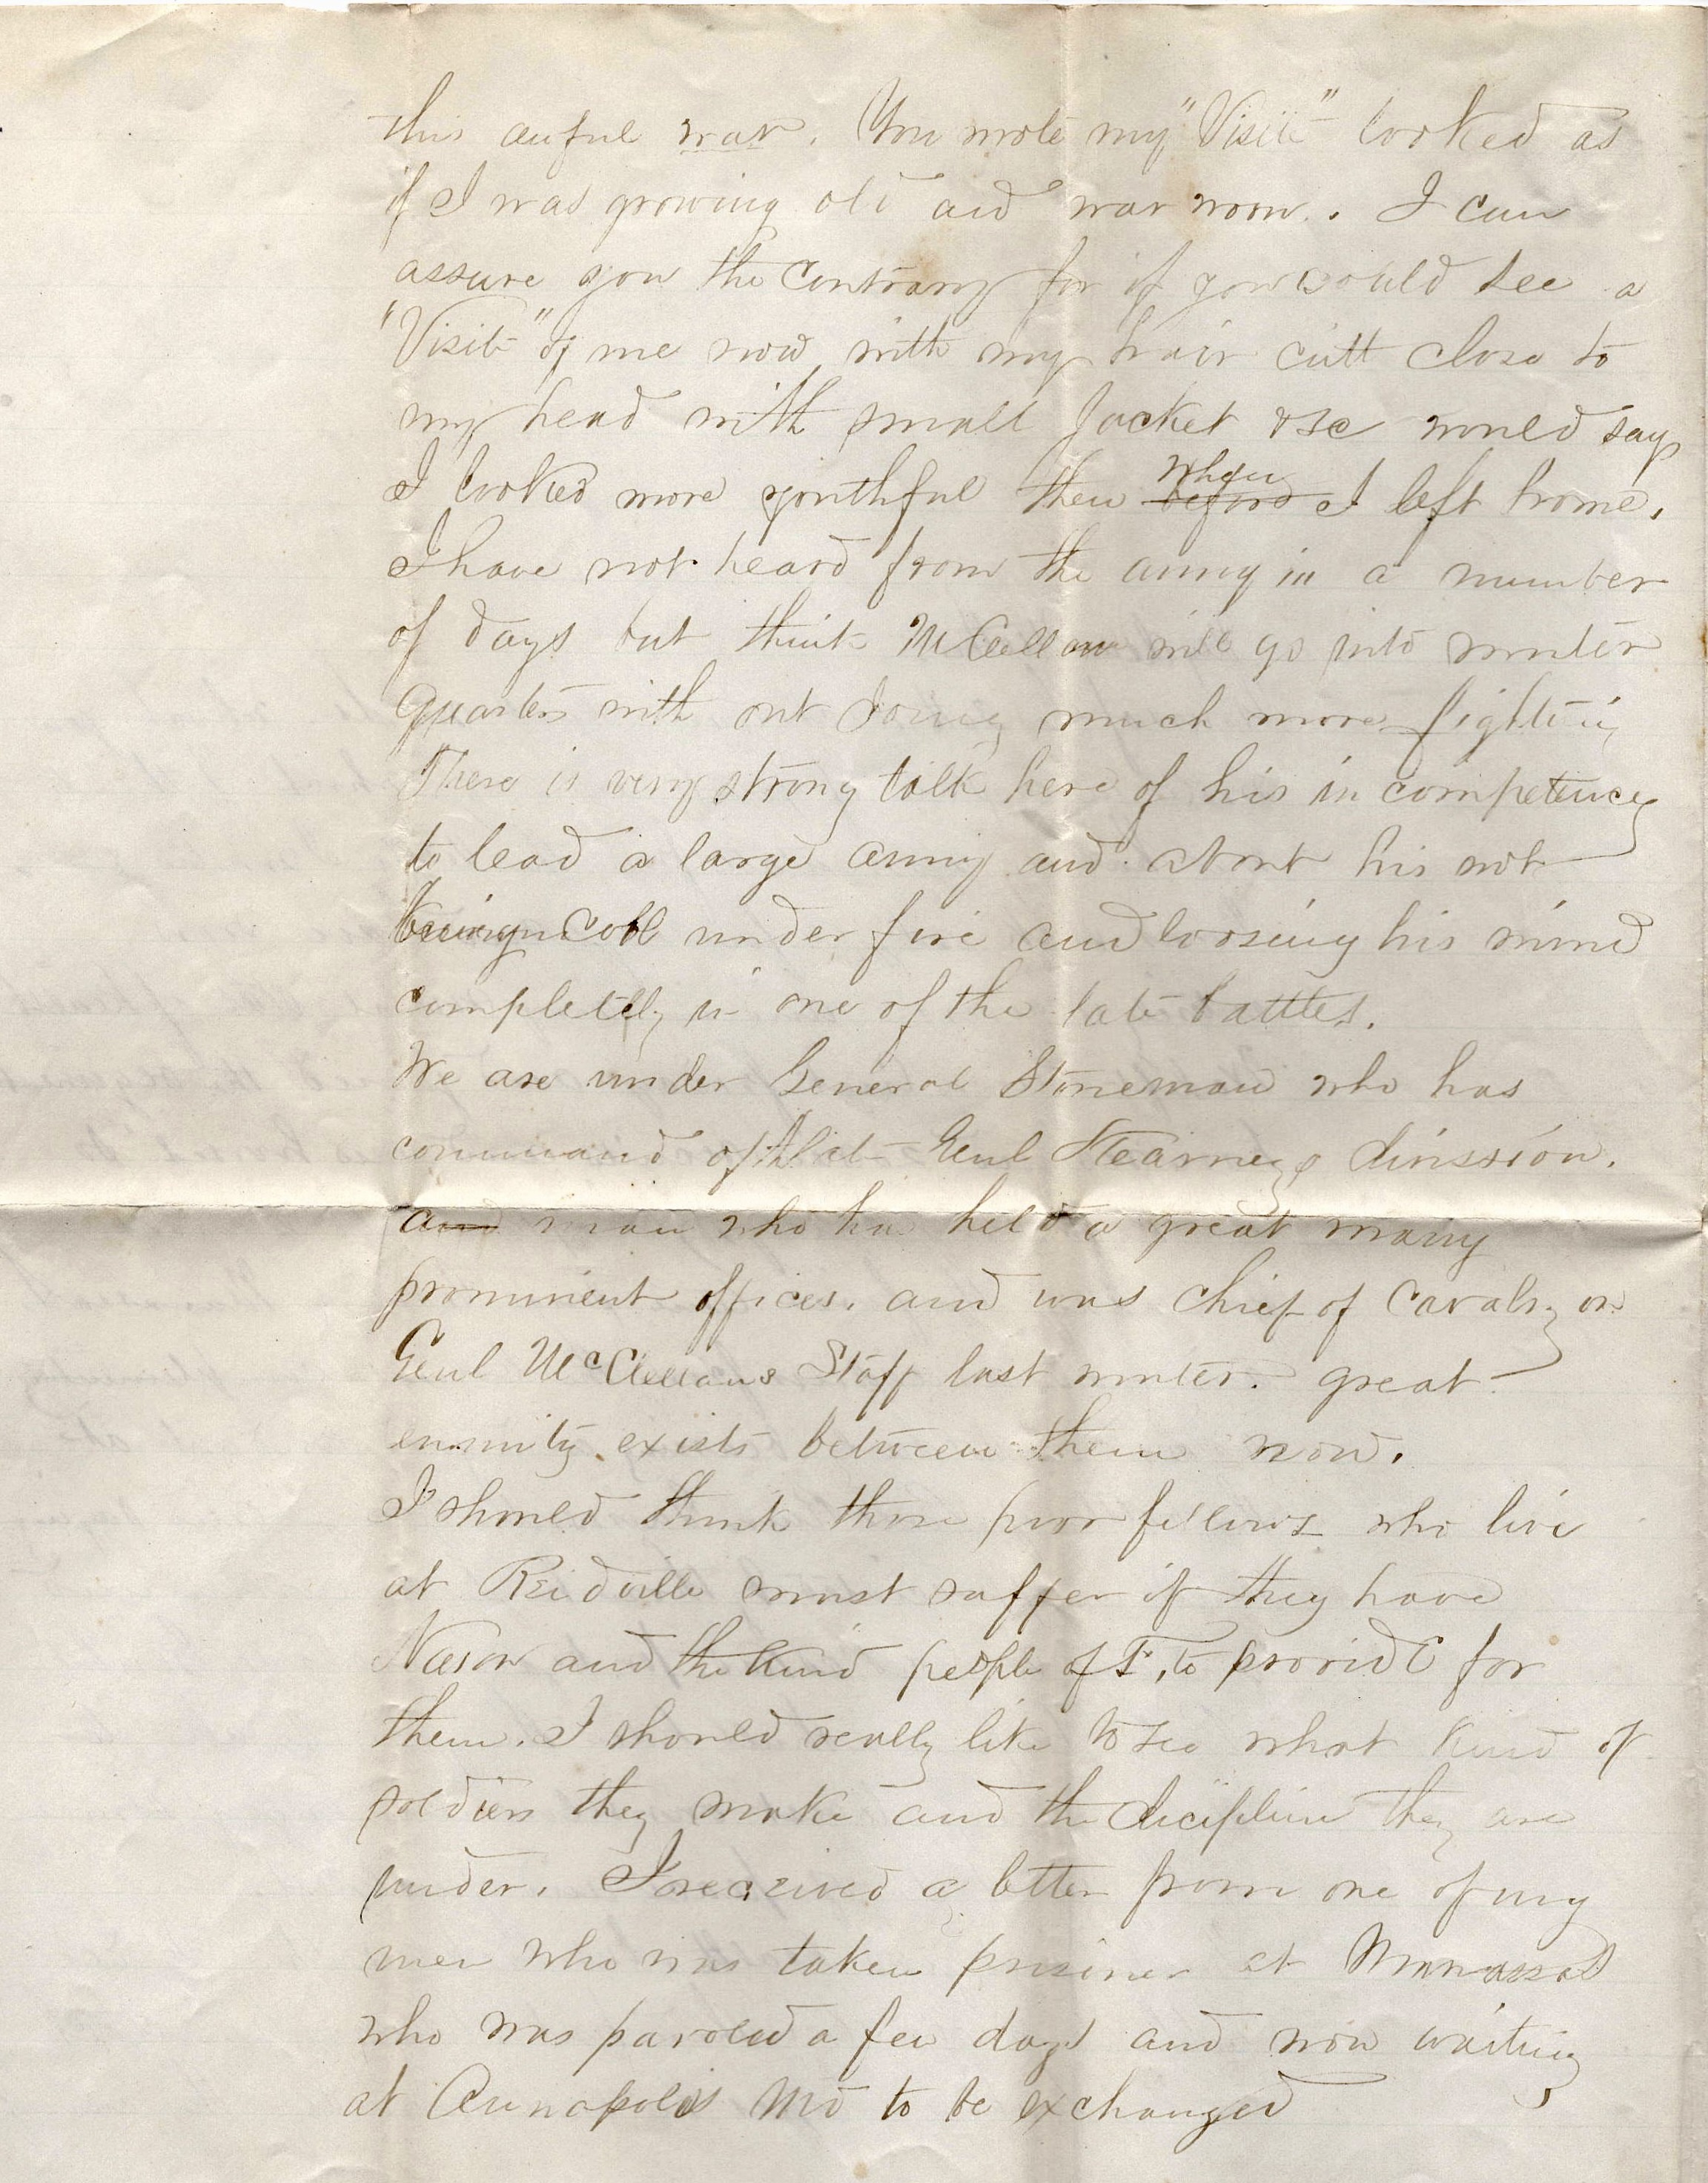 this awful war. You wrote my "Visite" looked as
if I was growing old and war worn. I can
assure you the contrary for if you would see a
"Visite" of me now with my hair cutt close to
my head with small Jacket &c would say
I looked more youthful then before when I left home.
I have not heard from the army in a number
of days but think McClellan will go into winter
quarters with out doing much more fighting
There is very strong talk here of his in competency
to lead a large army and about his not
being cool under fire and loosing his mind
completely in one of the late battles.
We are under General Stoneman who has
command of that Genl Kearneys division.
and man who has held a great many
prominent offices. and was chief of Cavalry on
Genl McClellans Staff last winter. great
enmity exists between them now.
I should think those poor fellows who live
at Reidville must suffer if they have
Nason and the kind people of F. to provide for
them. I should really like to see what kind of
soldiers they make and the dicipline they are
under. I received a letter from one of my
men who was taken prisiner at Manassas
who was paroled a few days and now waiting
at Annapolis Md to be exchanged